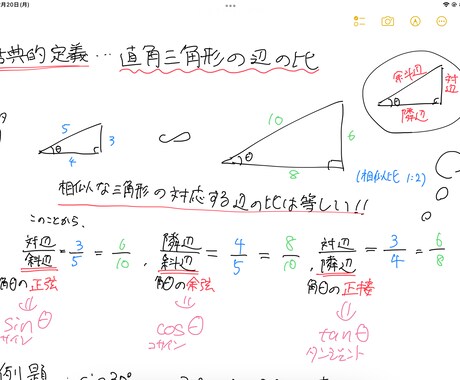 月20日(月)
古典的定義…直角三角形の辺の比
斜辺
対辺
θ
隣辺
5
3
θ
4
∽
10
6
θ
8
(相似比 1:2)
相似な三角形の対応する辺の比は等しい!!
このことから、
対辺/斜辺 = 3/5 = 6/10 , 隣辺/斜辺 = 4/5 = 8/10 , 対辺/隣辺 = 3/4 = 6/8
角θの正弦 角θの余弦 角θの正接
⇓ ⇓ ⇓
sinθ cosθ tanθ
サイン コサイン タンジェント
例題